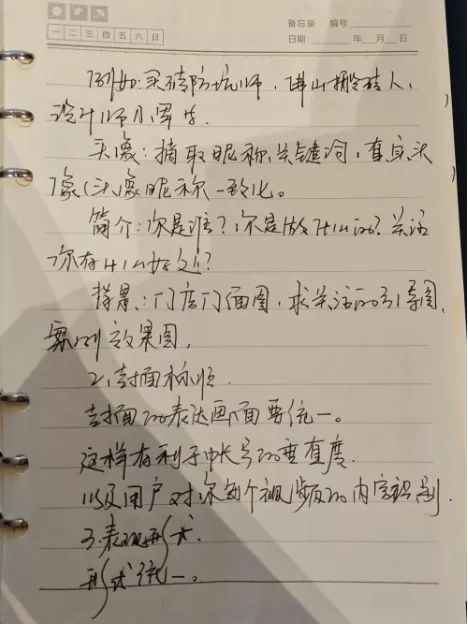 备忘录 编号
一 二 三 四 五 六 日
日期: 年 月 日
例如:买砖防坑师,佛山搬砖人,
设计师小军哥.
头像:摘取昵称关键词,真实头
像(头像昵称一致化。
简介:你是谁?你是做什么的?关注
你有什么好处?
背景:门店门面图,求关注的引导图,
案例效果图,
2,封面标准.
封面的表达画面要统一。
这样有利于中长号的垂直度.
以及用户对你每个视频的内容识别.
3.表现形式.
形式统一。